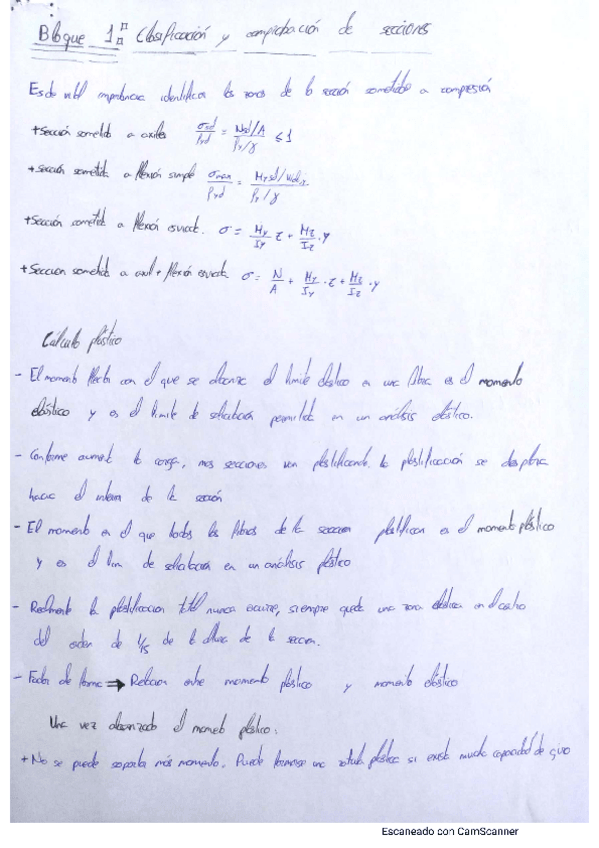 Bloque 1: Clasificación y comprobación de secciones
Es de vital importancia identificar las zonas de la sección sometidas a compresión
+Sección sometida a axiles σsd/ρyd = Nsd/A / ρy/γ ≤ 1
+Sección sometida a flexión simple σmax/ρyd = Mysd/ / ρy/γ
+Sección sometida a flexión esviada. σ = My/Iy z + Mz/Iz · y
+Sección sometida a axil + flexión esviada σ = N/A + My/Iy · z + Mz/Iz · y
Cálculo plástico
- El momento flector con el que se alcanza el límite elástico en una fibra es el momento
elástico y es el límite de solicitación permitida en un análisis elástico.
- Conforme aumenta la carga, más secciones van plastificando, la plastificación se desplaza
hacia el interior de la sección
- El momento en el que todas las fibras de la sección plastifican es el momento plástico
y es el límite de solicitación en un análisis plástico
- Realmente la plastificación total nunca ocurre, siempre queda una zona elástica en el centro
del orden de 1/15 de la altura de la sección.
- Factor de forma ⇒ Relación entre momento plástico y momento elástico
Una vez alcanzado el momento plástico:
+ No se puede soportar más momento. Puede formarse una rótula plástica si existe mucha capacidad de giro
Escaneado con CamScanner